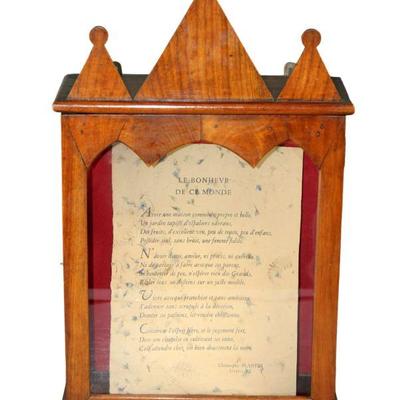 LE BONHEVR
DE CE MONDE
Avoir une maison commode, propre et belle,
Un jardin tapissé d'espaliers odorans,
Des fruits, d'excellent vin, peu de train, peu d'enfans,
Posseder seul, sans bruit, une femme fidèle.
N'avoir dettes, amour, ni procès, ni querelle,
Ni de partage à faire avecque ses parens,
Se contenter de peu, n'espérer rien des Grands,
Régler tous ses desseins sur un juste modèle.
Vivre avecque franchise et sans ambition,
S'adonner sans scrupule à la dévotion,
Domter ses passions, les rendre obéissantes.
Conserver l'esprit libre, et le jugement fort,
Dire son chapelet en cultivant ses entes,
C'est attendre chez soi bien doucement la mort.
Christophe PLANTIN